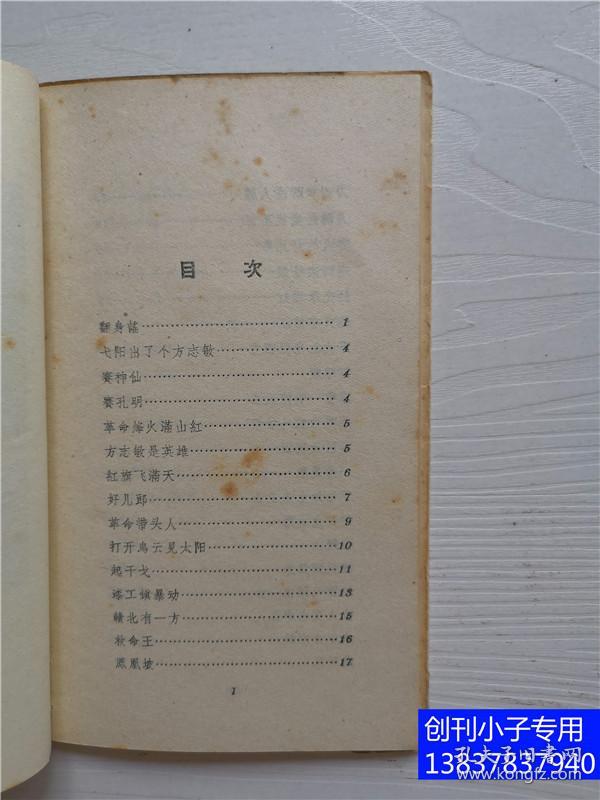 目 次
翻身謠……1
弋阳出了个方志敏……4
賽神仙……4
賽孔明……4
革命烽火滿山紅……5
方志敏是英雄……5
紅旗飞滿天……6
好儿郎……7
革命带头人……9
打开烏云見太阳……10
起干戈……11
漆工鎮暴动……13
贛北有一方……15
救命王……16
鳳凰坡……17
1
创刊小子专用
13837837940
孔夫子旧書网
www.kongfz.com